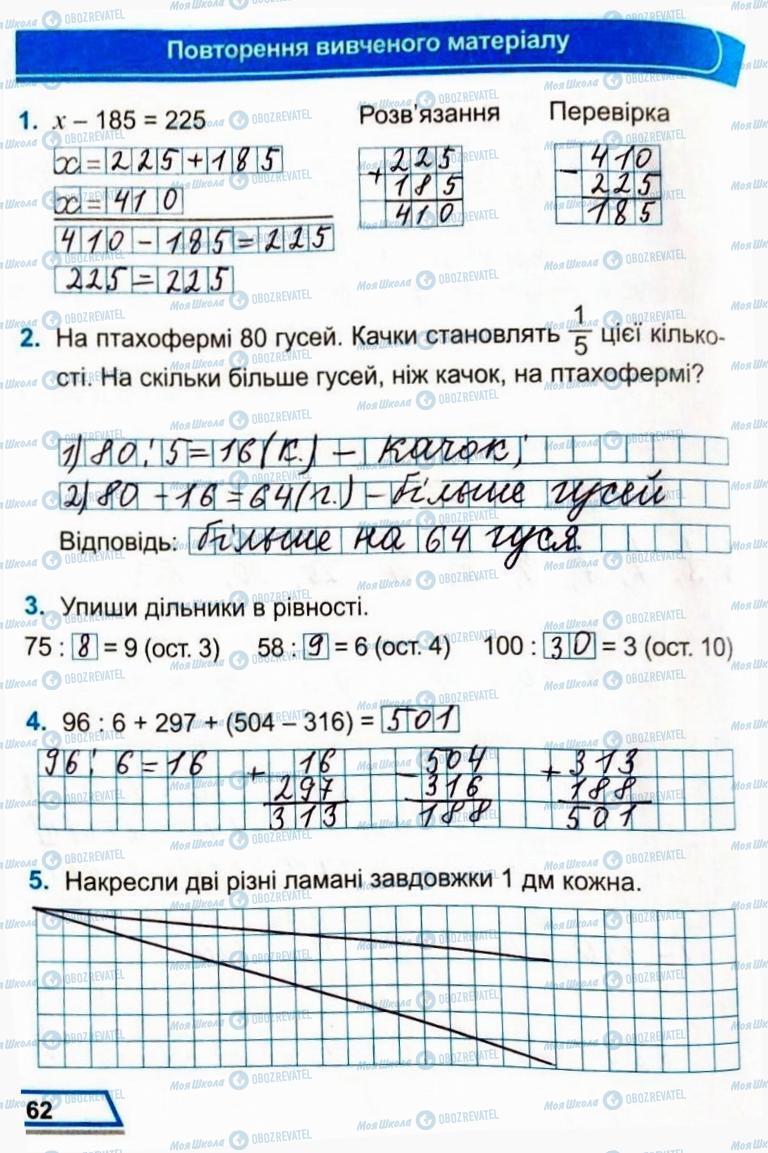 Повторення вивченого матеріалу
1. x – 185 = 225 Розв'язання Перевірка
x = 225 + 185
x = 410
410 – 185 = 225
225 = 225
+ 225
185
410
– 410
225
185
2. На птахофермі 80 гусей. Качки становлять 1/5 цієї кілько-
сті. На скільки більше гусей, ніж качок, на птахофермі?
1) 80 : 5 = 16 (к.) – качок;
2) 80 – 16 = 64 (г.) – більше гусей
Відповідь: більше на 64 гуся.
3. Упиши дільники в рівності.
75 : 8 = 9 (ост. 3) 58 : 9 = 6 (ост. 4) 100 : 30 = 3 (ост. 10)
4. 96 : 6 + 297 + (504 – 316) = 501
96 : 6 = 16
+ 16
297
313
– 504
316
188
+ 313
188
501
5. Накресли дві різні ламані завдовжки 1 дм кожна.
62
Моя Школа OBOZREVATEL